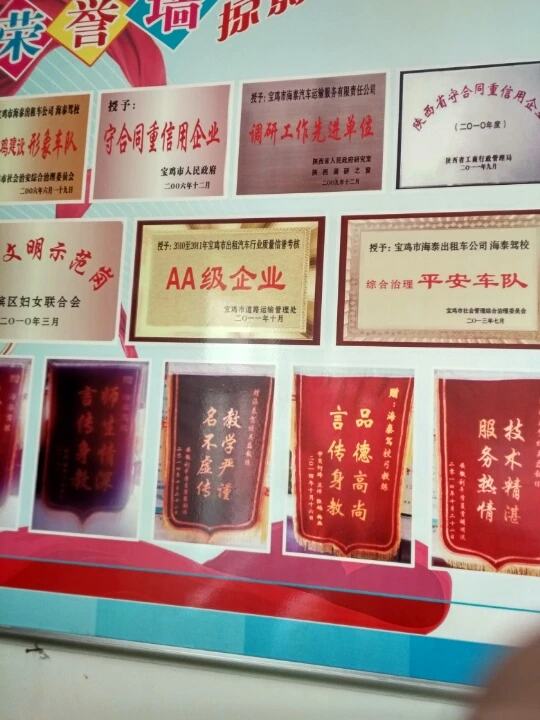 荣誉墙
授予：宝鸡市海泰出租车公司 海泰驾校
形象车队
市社会治安综合治理委员会
二〇〇六年六月一十九日
授予：
守合同重信用企业
宝鸡市人民政府
二〇〇六年十二月
授予：宝鸡市海泰汽车运输服务有限责任公司
调研工作先进单位
陕西省人民政府研究室
陕西调研之窗
二〇〇九年十二月
陕西省守合同重信用企业
（二〇一〇年度）
陕西省工商行政管理局
二〇一一年九月
文明示范岗
滨区妇女联合会
二〇一〇年三月
授予：2010至2011年宝鸡市出租汽车行业质量信誉考核
AA级企业
宝鸡市道路运输管理处
二〇一一年十月
授予：宝鸡市海泰出租车公司 海泰驾校
综合治理 平安车队
宝鸡市社会管理综合治理委员会
二〇一三年七月
师生情深
言传身教
教学严谨
名不虚传
赠：海泰驾校弓教练
品德高尚
言传身教
二〇一四年十月十六日
技术精湛
服务热情
二零一四年十月二十一日